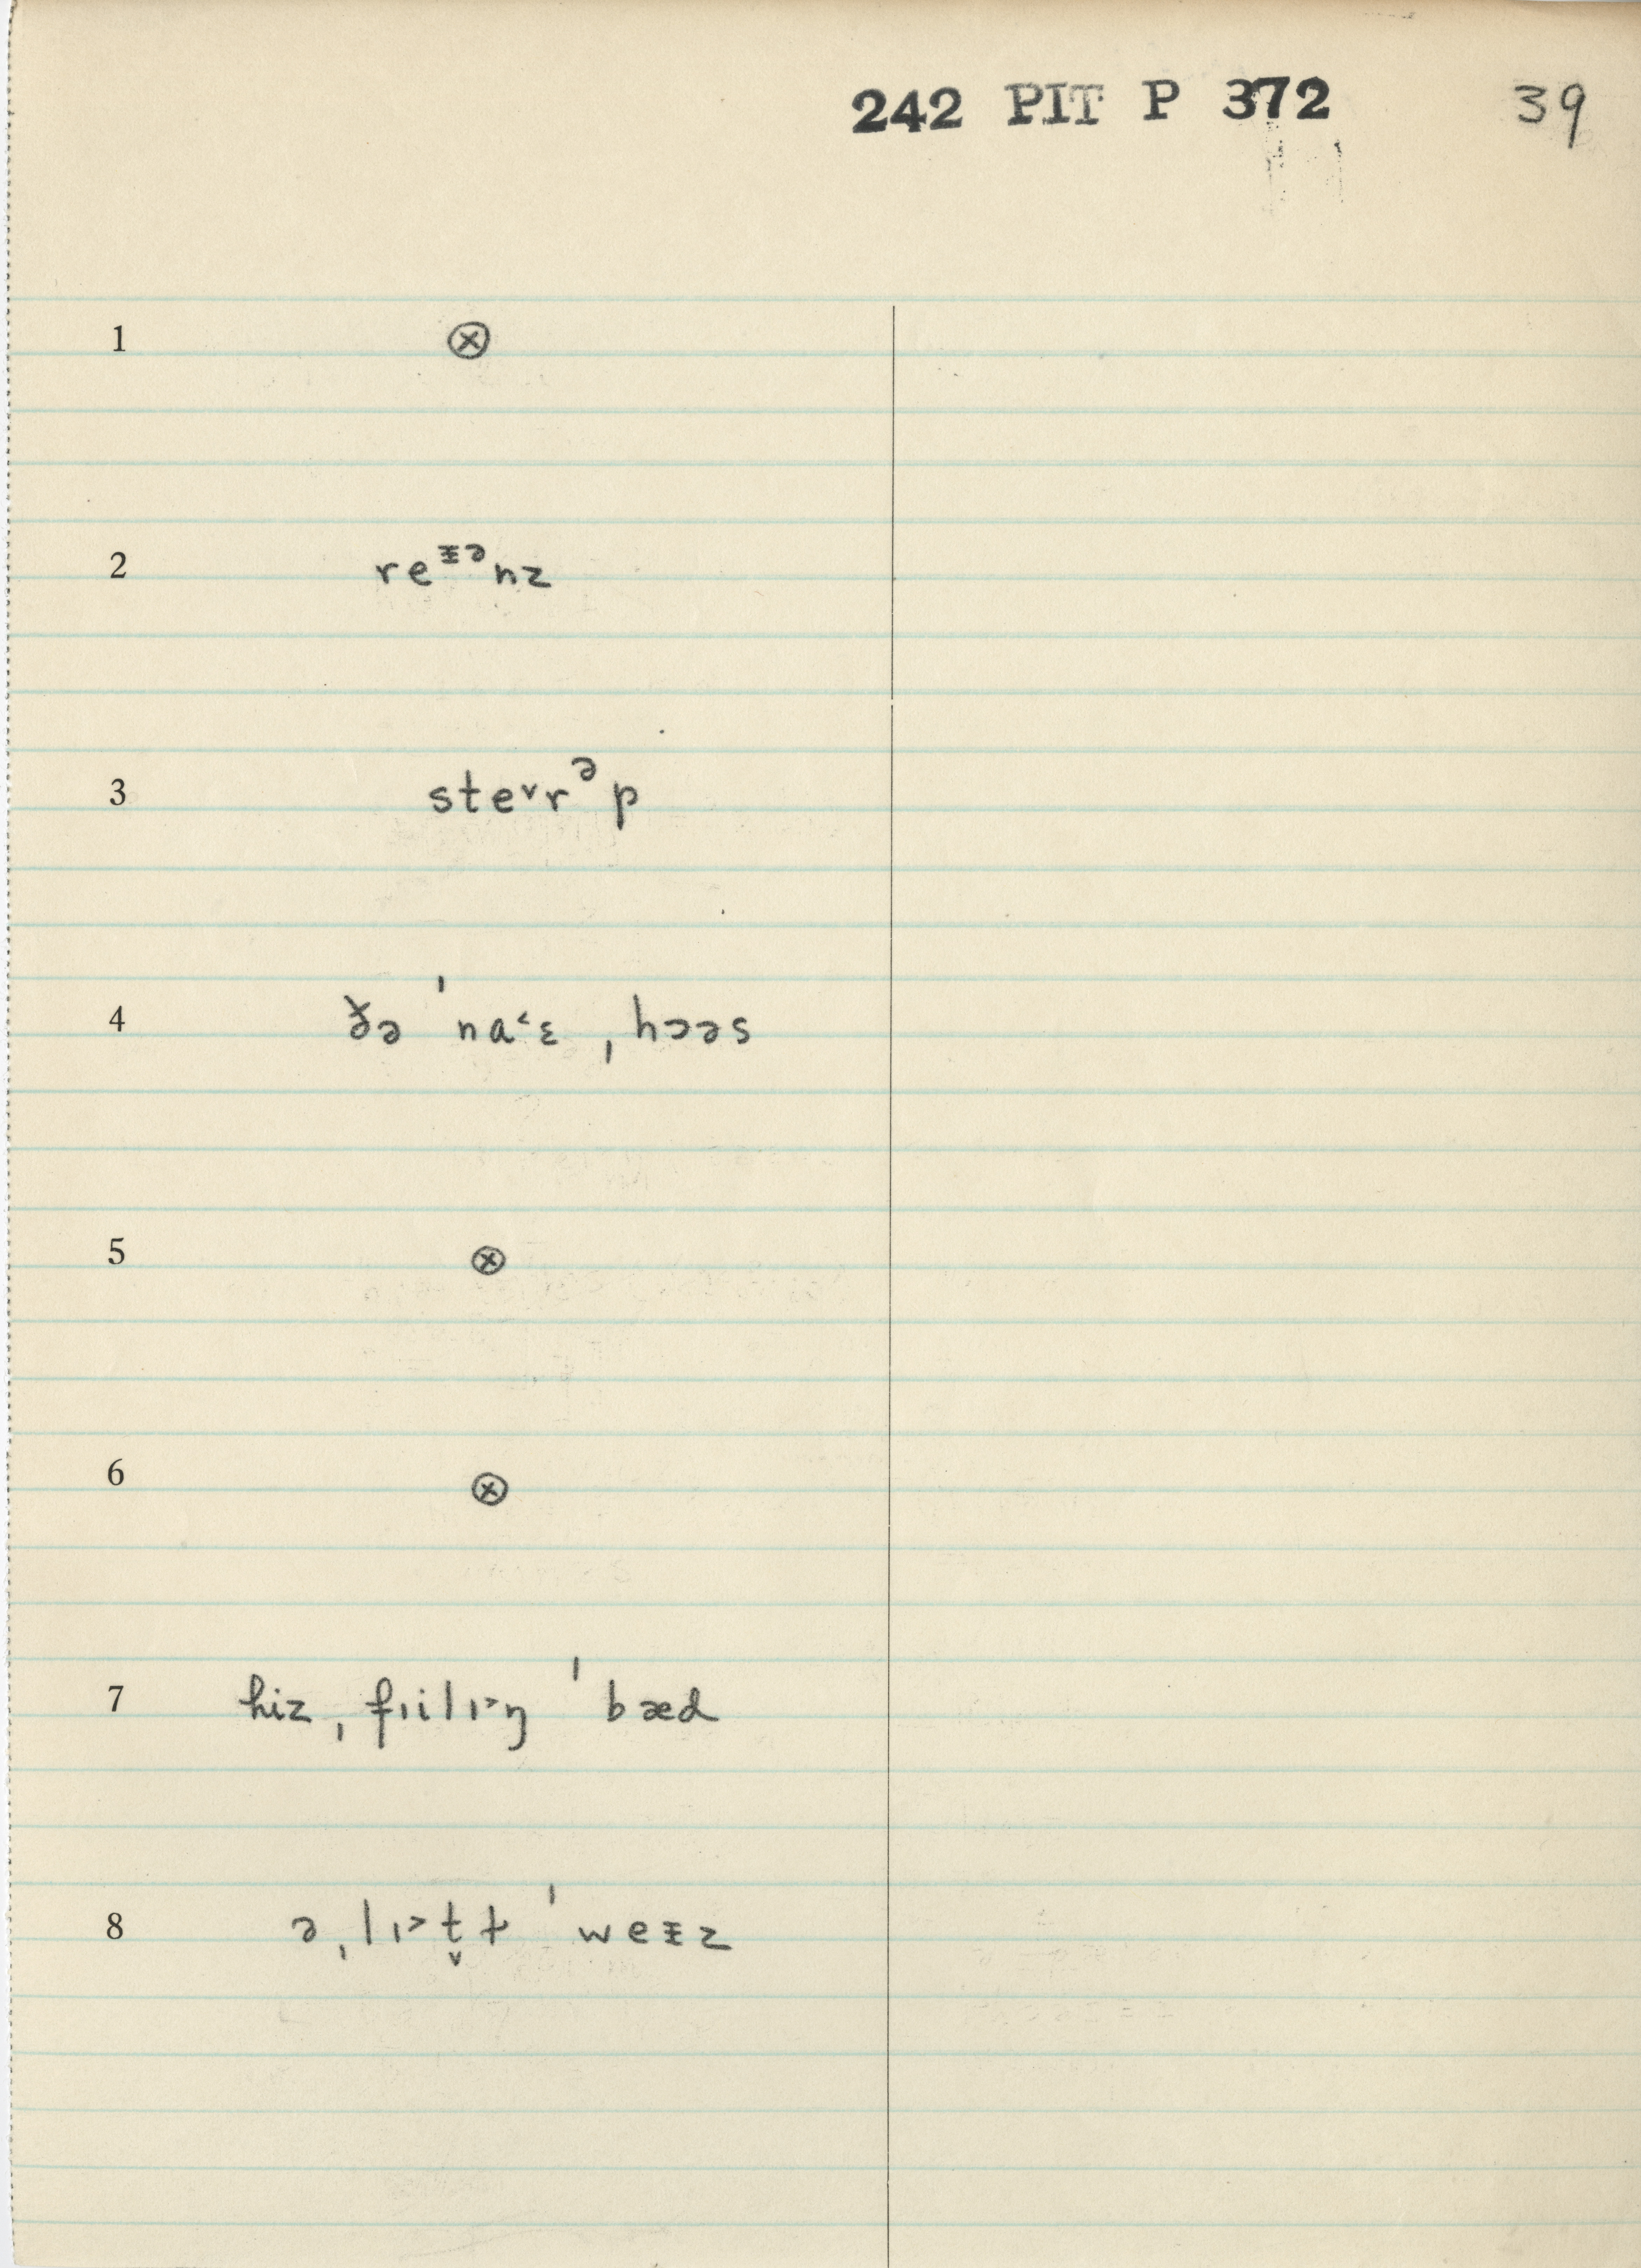 242 PIT P 372 39
1 ⊗
2 reᵻᵊnz
3 ste˅rᵊp
4 ð̶ə ˈna˂ɛ ˌhɔəs
5 ⊗
6 ⊗
7 hiz ˌfɪilɪ˃ŋ ˈbæd
8 ə ˌlɪ˃t̬ɫ ˈweᵻz